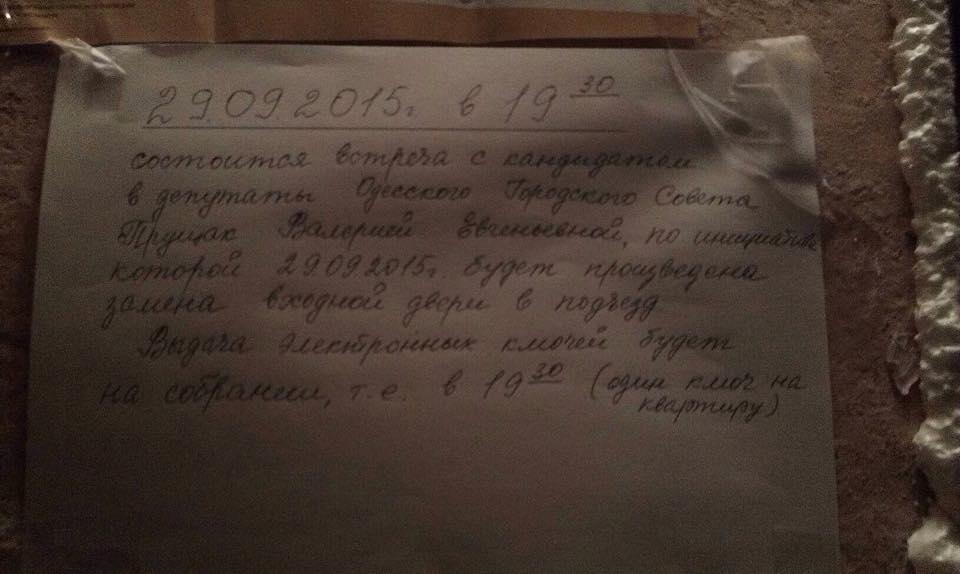 29.09.2015г. в 19 30
состоится встреча с кандидатом
в депутаты Одесского Городского Совета
Прущак Валерией Евгеньевной, по инициативе
которой 29.09.2015г. будет произведена
замена входной двери в подъезд
Выдача электронных ключей будет
на собрании, т.е. в 19 30 (один ключ на
квартиру)